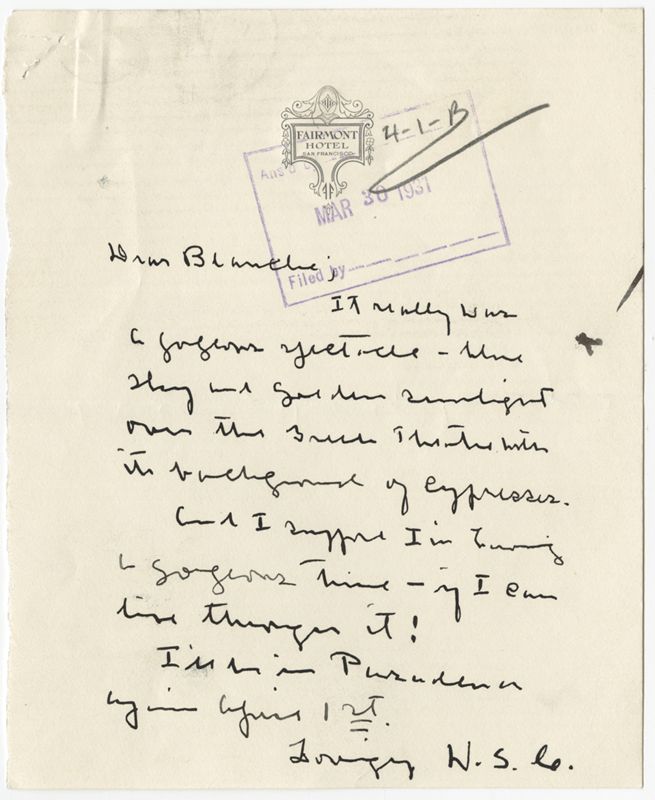 FAIRMONT
HOTEL
SAN FRANCISCO
4-1-B
Ans'd
MAR 30 1931
Filed by
Dear Blanche;
It really was
a gorgeous spectacle - blue
sky and golden sunlight
over the Greek Theatre with
its background of cypresses.
And I suppose I'm having
a gorgeous time - if I can
live through it!
I'll be in Pasadena
again April 1st.
Lovingly W. S. C.